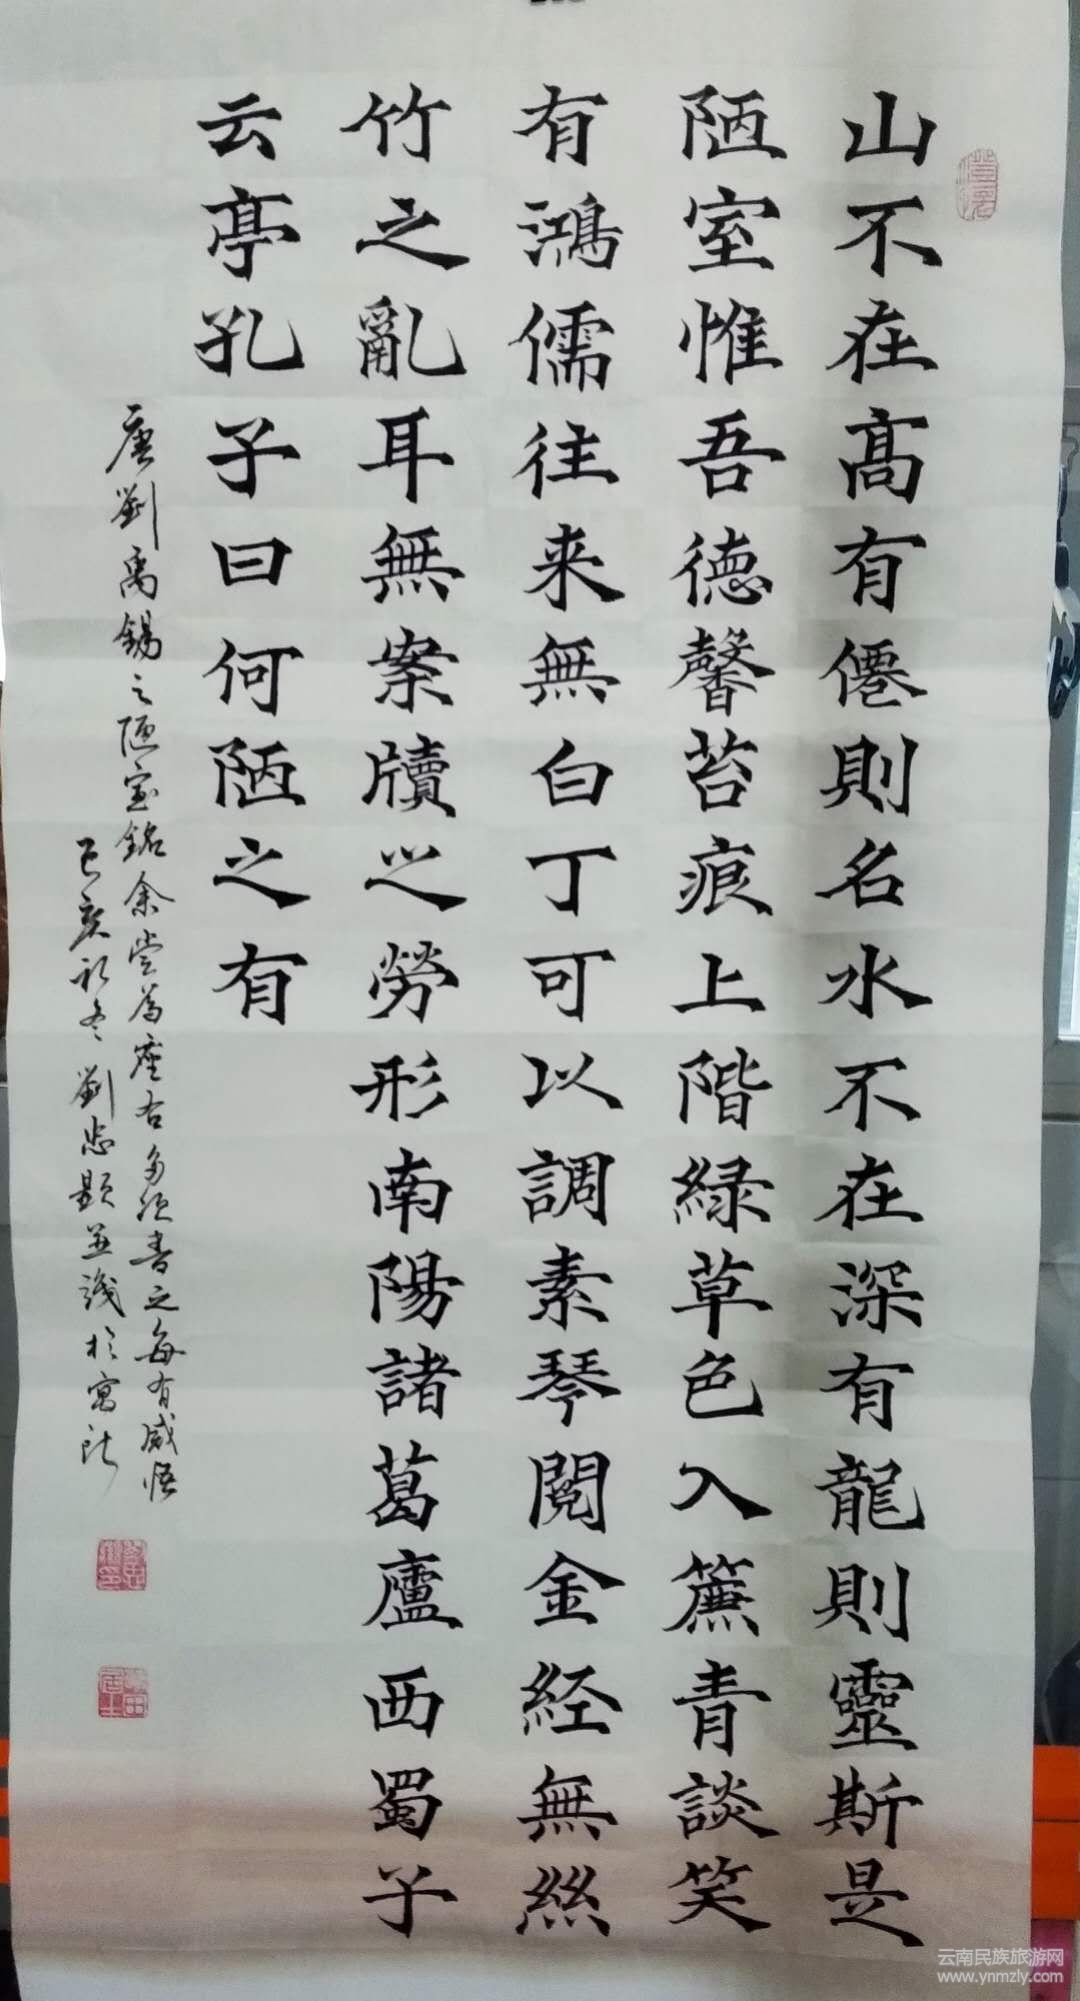 山不在高有僊則名水不在深有龍則靈斯是
陋室惟吾德馨苔痕上階緑草色入簾青談笑
有鴻儒往来無白丁可以調素琴閱金経無絲
竹之亂耳無案牘之勞形南陽諸葛廬西蜀子
云亭孔子曰何陋之有
唐劉禹錫之陋室銘余嘗為座右多次書之每有感悟
己亥初冬劉忠題並識於寓所
云南民族旅游网
www.ynmzly.com